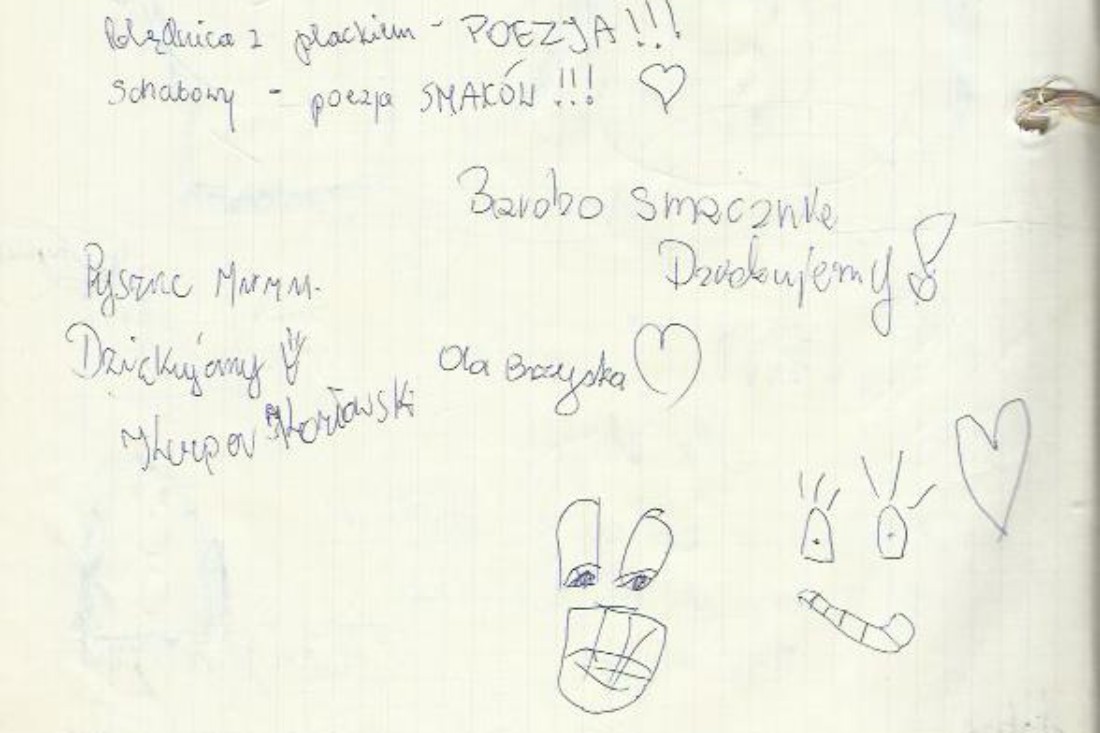 Polędwica z plackiem - POEZJA!!!
Schabowy - poezja SMAKÓW!!!
Bardzo smaczne
Dziękujemy!
Pyszne Mmmm.
Dziękujemy
Ola Brzyska